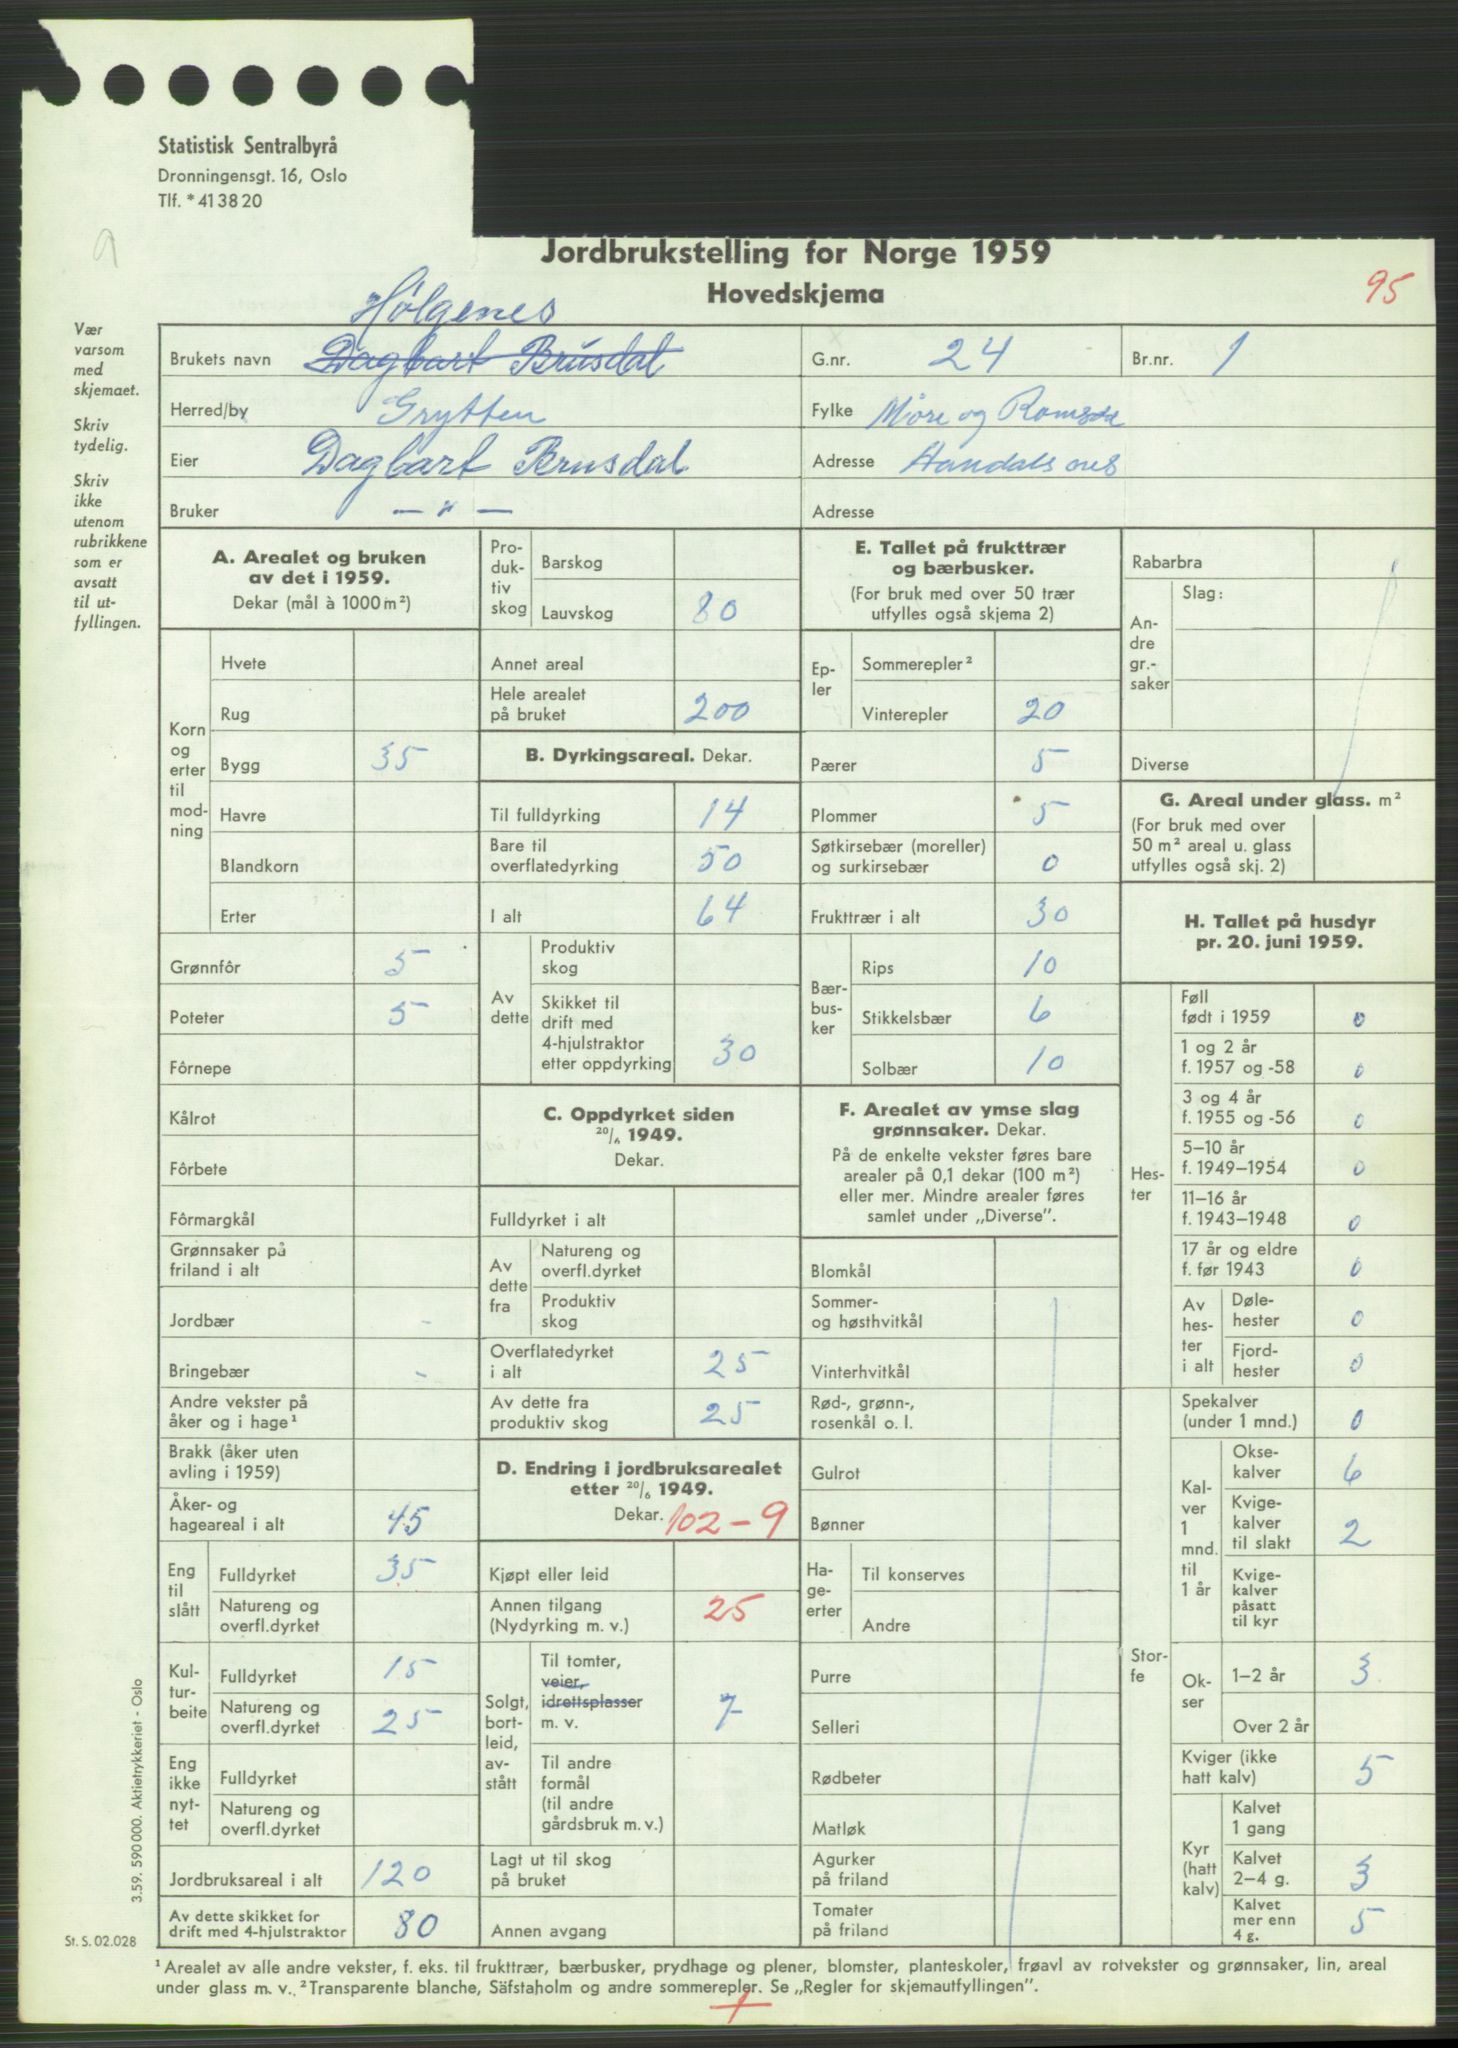 Statistisk Sentralbyrå
Dronningensgt. 16, Oslo
Tlf. * 41 38 20
Jordbrukstelling for Norge 1959
Hovedskjema
95
Vær
varsom
med
skjemaet.
Skriv
tydelig.
Skriv
ikke
utenom
rubrikkene
som er
avsatt
til ut-
fyllingen.
Hølgenes
Brukets navn Dagbart Brusdal G.nr. 24 Br.nr. 1
Herred/by Grytten Fylke Møre og Romsdal
Eier Dagbart Brusdal Adresse Aandalsnes
Bruker — " — Adresse
A. Arealet og bruken
av det i 1959.
Dekar (mål à 1000 m²)
Korn
og
erter
til
mod-
ning
Hvete
Rug
Bygg 35
Havre
Blandkorn
Erter
Grønnfôr 5
Poteter 5
Fôrnepe
Kålrot
Fôrbete
Fôrmargkål
Grønnsaker på
friland i alt
Jordbær -
Bringebær -
Andre vekster på
åker og i hage¹
Brakk (åker uten
avling i 1959)
Åker- og
hageareal i alt 45
Eng
til
slått
Fulldyrket 35
Natureng og
overfl.dyrket
Kul-
tur-
beite
Fulldyrket 15
Natureng og
overfl.dyrket 25
Eng
ikke
nyt-
tet
Fulldyrket
Natureng og
overfl.dyrket
Jordbruksareal i alt 120
Av dette skikket for
drift med 4-hjulstraktor 80
Pro-
duk-
tiv
skog
Barskog
Lauvskog 80
Annet areal
Hele arealet
på bruket 200
B. Dyrkingsareal. Dekar.
Til fulldyrking 14
Bare til
overflatedyrking 50
I alt 64
Av
dette
Produktiv
skog
Skikket til
drift med
4-hjulstraktor
etter oppdyrking 30
C. Oppdyrket siden
20/6 1949.
Dekar.
Fulldyrket i alt
Av
dette
fra
Natureng og
overfl.dyrket
Produktiv
skog
Overflatedyrket
i alt 25
Av dette fra
produktiv skog 25
D. Endring i jordbruksarealet
etter 20/6 1949.
Dekar. 102-9
Kjøpt eller leid
Annen tilgang
(Nydyrking m. v.) 25
Solgt,
bort-
leid,
av-
stått
Til tomter,
veier,
idrettsplasser
m. v. 7
Til andre
formål
(til andre
gårdsbruk m. v.)
Lagt ut til skog
på bruket
Annen avgang
E. Tallet på frukttrær
og bærbusker.
(For bruk med over 50 trær
utfylles også skjema 2)
Ep-
ler
Sommerepler²
Vinterepler 20
Pærer 5
Plommer 5
Søtkirsebær (moreller)
og surkirsebær 0
Frukttrær i alt 30
Bær-
bus-
ker
Rips 10
Stikkelsbær 6
Solbær 10
F. Arealet av ymse slag
grønnsaker. Dekar.
På de enkelte vekster føres bare
arealer på 0,1 dekar (100 m²)
eller mer. Mindre arealer føres
samlet under „Diverse”.
Blomkål
Sommer-
og høsthvitkål
Vinterhvitkål
Rød-, grønn-,
rosenkål o. l.
Gulrot
Bønner
Ha-
ge-
erter
Til konserves
Andre
Purre
Selleri
Rødbeter
Matløk
Agurker
på friland
Tomater
på friland
Rabarbra
An-
dre
gr.-
saker
Slag:
Diverse
G. Areal under glass. m²
(For bruk med over
50 m² areal u. glass
utfylles også skj. 2)
H. Tallet på husdyr
pr. 20. juni 1959.
Hes-
ter
Føll
født i 1959 0
1 og 2 år
f. 1957 og -58 0
3 og 4 år
f. 1955 og -56 0
5–10 år
f. 1949–1954 0
11–16 år
f. 1943–1948 0
17 år og eldre
f. før 1943 0
Av
hes-
ter
i alt
Døle-
hester 0
Fjord-
hester 0
Stor-
fe
Spekalver
(under 1 mnd.) 0
Kal-
ver
1
mnd.
til
1 år
Okse-
kalver 6
Kvige-
kalver
til slakt 2
Kvige-
kalver
påsatt
til kyr
Ok-
ser
1–2 år 3
Over 2 år
Kviger (ikke
hatt kalv) 5
Kyr
(hatt
kalv)
Kalvet
1 gang
Kalvet
2–4 g. 3
Kalvet
mer enn
4 g. 5
3.59. 590 000. Aktietrykkeriet - Oslo
St. S. 02.028
¹ Arealet av alle andre vekster, f. eks. til frukttrær, bærbusker, prydhage og plener, blomster, planteskoler, frøavl av rotvekster og grønnsaker, lin, areal
under glass m. v. ² Transparente blanche, Säfstaholm og andre sommerepler. Se „Regler for skjemautfyllingen”.